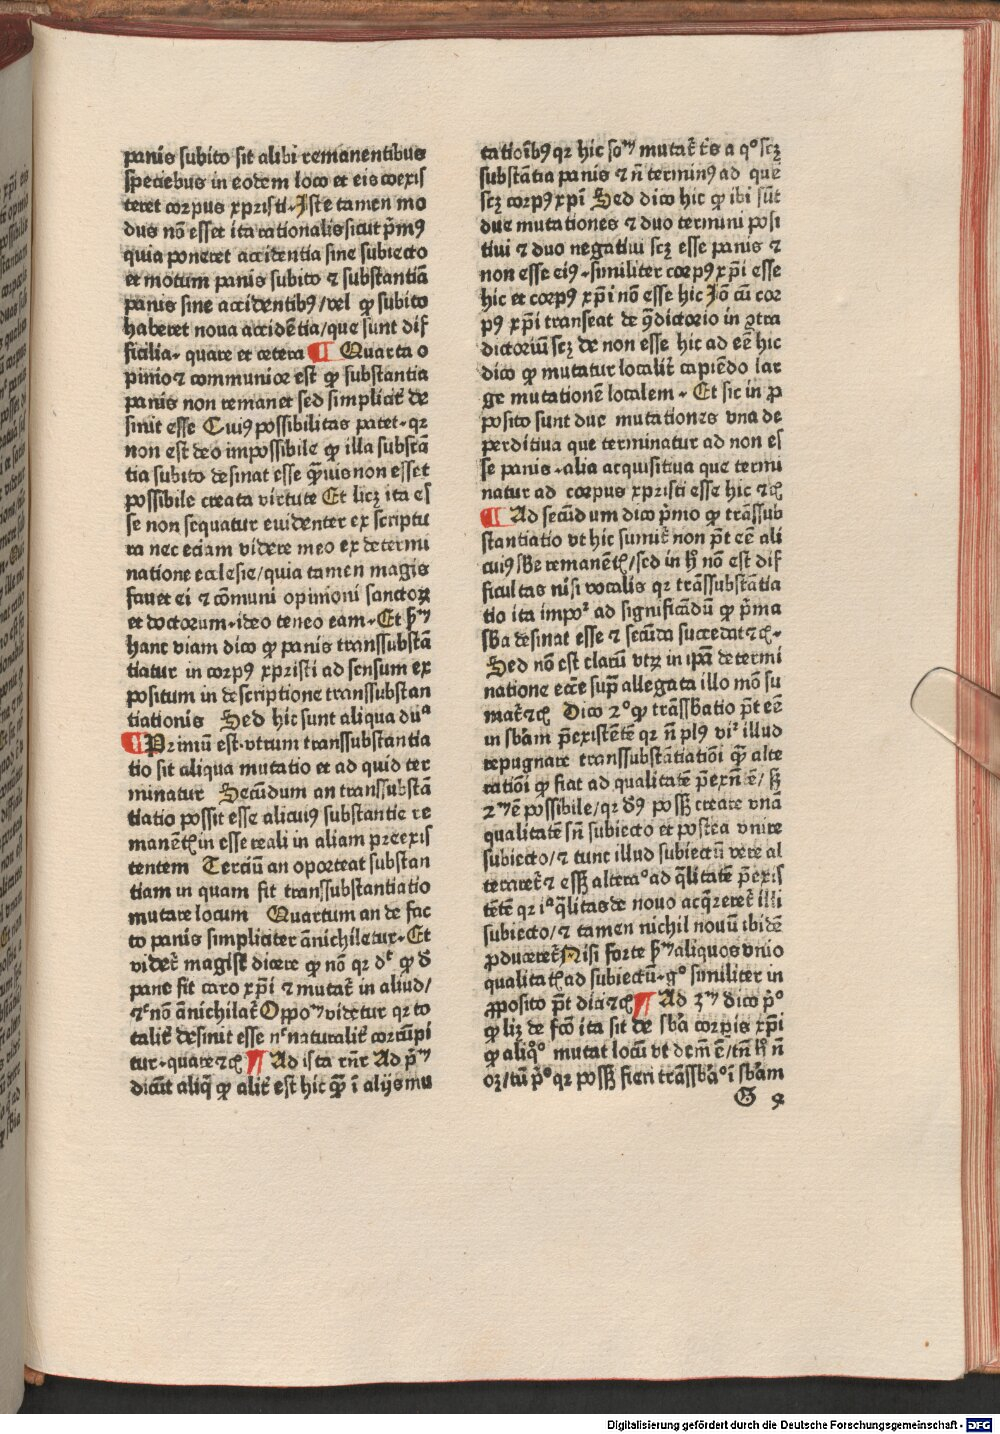 panis subito sit alibi remanentibus
speciebus in eodem loco et eis coexis
teret corpus xpristi. Iste tamen mo
dus nō esset ita rationalis sicut p̄mꝰ
quia poneret accidentia sine subiecto
et motum panis subito ⁊ substantiā
panis sine accidentibꝰ/vel ꝙ subito
haberet noua accidētia/que sunt dif
ficilia. quare et cetera ¶ Quarta o
pinio ⁊ communior est ꝙ substantia
panis non remanet sed simplicit̄ de
sinit esse Cuiꝰ possibilitas patet. qꝛ
non est deo impossibile ꝙ illa substā
tia subito desinat esse q̄uis non esset
possibile creata virtute Et licꝫ ita es
se non sequatur euidenter ex scriptu
ra nec eciam videre meo ex determi
natione ecclesie/quia tamen magis
fauet ei ⁊ cōmuni opinioni sanctoꝝ
et doctorum. ideo teneo eam. Et ẜm
hanc viam dico ꝙ panis transsubstā
tiatur in corpꝰ xpristi ad sensum ex
positum in descriptione transsubstan
tiationis Sed hic sunt aliqua duᵃ
¶ Primū est. vtrum transsubstantia
tio sit aliqua mutatio et ad quid ter
minatur Secūdum an transsubstā
tiatio possit esse alicuiꝰ substantie re
manēt͛ in esse reali in aliam preexis
tentem Terciū an oporteat substan
tiam in quam fit transsubstantiatio
mutare locum Quartum an de fac
to panis simpliciter ānichiletur. Et
videt̄ magist̄ dicere ꝙ nō qꝛ dᵗ ꝙ ð
pane fit caro xp̄i ⁊ mutat̄ in aliud/
⁊ᶜ nō ānichilat̄ Oppoᵐ videtur qꝛ to
talit̄ desinit esse nᶜ naturalit̄ corrūpi
tur. quare ⁊c̄ ¶ Ad ista rn̄r Ad p̄ᵐ
dicūt aliq̄ ꝙ alit̄ est hic q̄ ī alijs mu
tatioībꝰ qꝛ hic soᵐ mutat̄ t̄s a qᵒ scꝫ
substātia panis ⁊ n̄ terminꝰ ad quē
scꝫ corpꝰ xp̄i Sed dico hic ꝙ ibi sūt
due mutationes ⁊ duo termini posi
tiui ⁊ duo negatiui scꝫ esse panis ⁊
non esse eiꝰ. similiter corpꝰ xp̄i esse
hic et corpꝰ xp̄i nō esse hic Iō cū cor
pꝰ xp̄i transeat de ꝯ̄dictorio in ꝯtra
dictoriū scꝫ de non esse hic ad eē hic
dico ꝙ mutatur localit̄ capiēdo lar
ge mutationē localem. Et sic in ꝓ
posito sunt due mutationes vna de
perditiua que terminatur ad non es
se panis. alia acquisitiua que termi
natur ad corpus xpristi esse hic ⁊c̄
¶ Ad secūd um dico p̄mo ꝙ trāssub
stantiatio vt hic sumit̄ non p̄t eē ali
cuiꝰ sb̄e remanēt͛/sed in h̄ nō est dif
ficultas nisi vocalis qꝛ trāssubstātia
tio ita impoʳ ad significādū ꝙ p̄ma
sb̄a desinat esse ⁊ secūda succedat ⁊c̄.
Sed nō est clarū vtꝝ in ip̄a determi
natione ecc̄e sup̄ allegata illo mō su
mat̄ ⁊c̄ Dico 2ᵒ ꝙ trāssb̄atio p̄t eē
in sb̄am p̄existētē qꝛ n̄ plꝰ viʳ illud
repugnare transsubstātiatiōi q̄ alte
ratiōi ꝙ fiat ad qualitatē p̄exn̄ē/ sꝫ
2ᵐ ē possibile/qꝛ ðꝰ possꝫ creare vnā
qualitatē sn̄ subiecto et postea vnire
subiecto/⁊ tunc illud subiectū vere al
teraret̄ ⁊ essꝫ alteraᵒ ad q̄litatē p̄exis
tētē qꝛ iᵃ q̄litas de nouo acq̄reret̄ illi
subiecto/⁊ tamen nichil nouū ibidē
ꝓduceret̄ Nisi forte ẜm aliquos vnio
qualitat͛ ad subiectū. gᵒ similiter in
ꝓposito p̄t dici ⁊c̄ ¶ Ad 3ᵐ dico p̄ᵒ
ꝙ licꝫ de fc̄o ita sit de sb̄a corpis xp̄i
ꝙ aliqᵒ mutat locū vt dcm̄ ē/tn̄ h̄ n̄
oꝫ/tū p̄ᵒ qꝛ possꝫ fieri trāssb̄aᵒ ī sb̄am
G 2
Digitalisierung gefördert durch die Deutsche Forschungsgemeinschaft - DFG